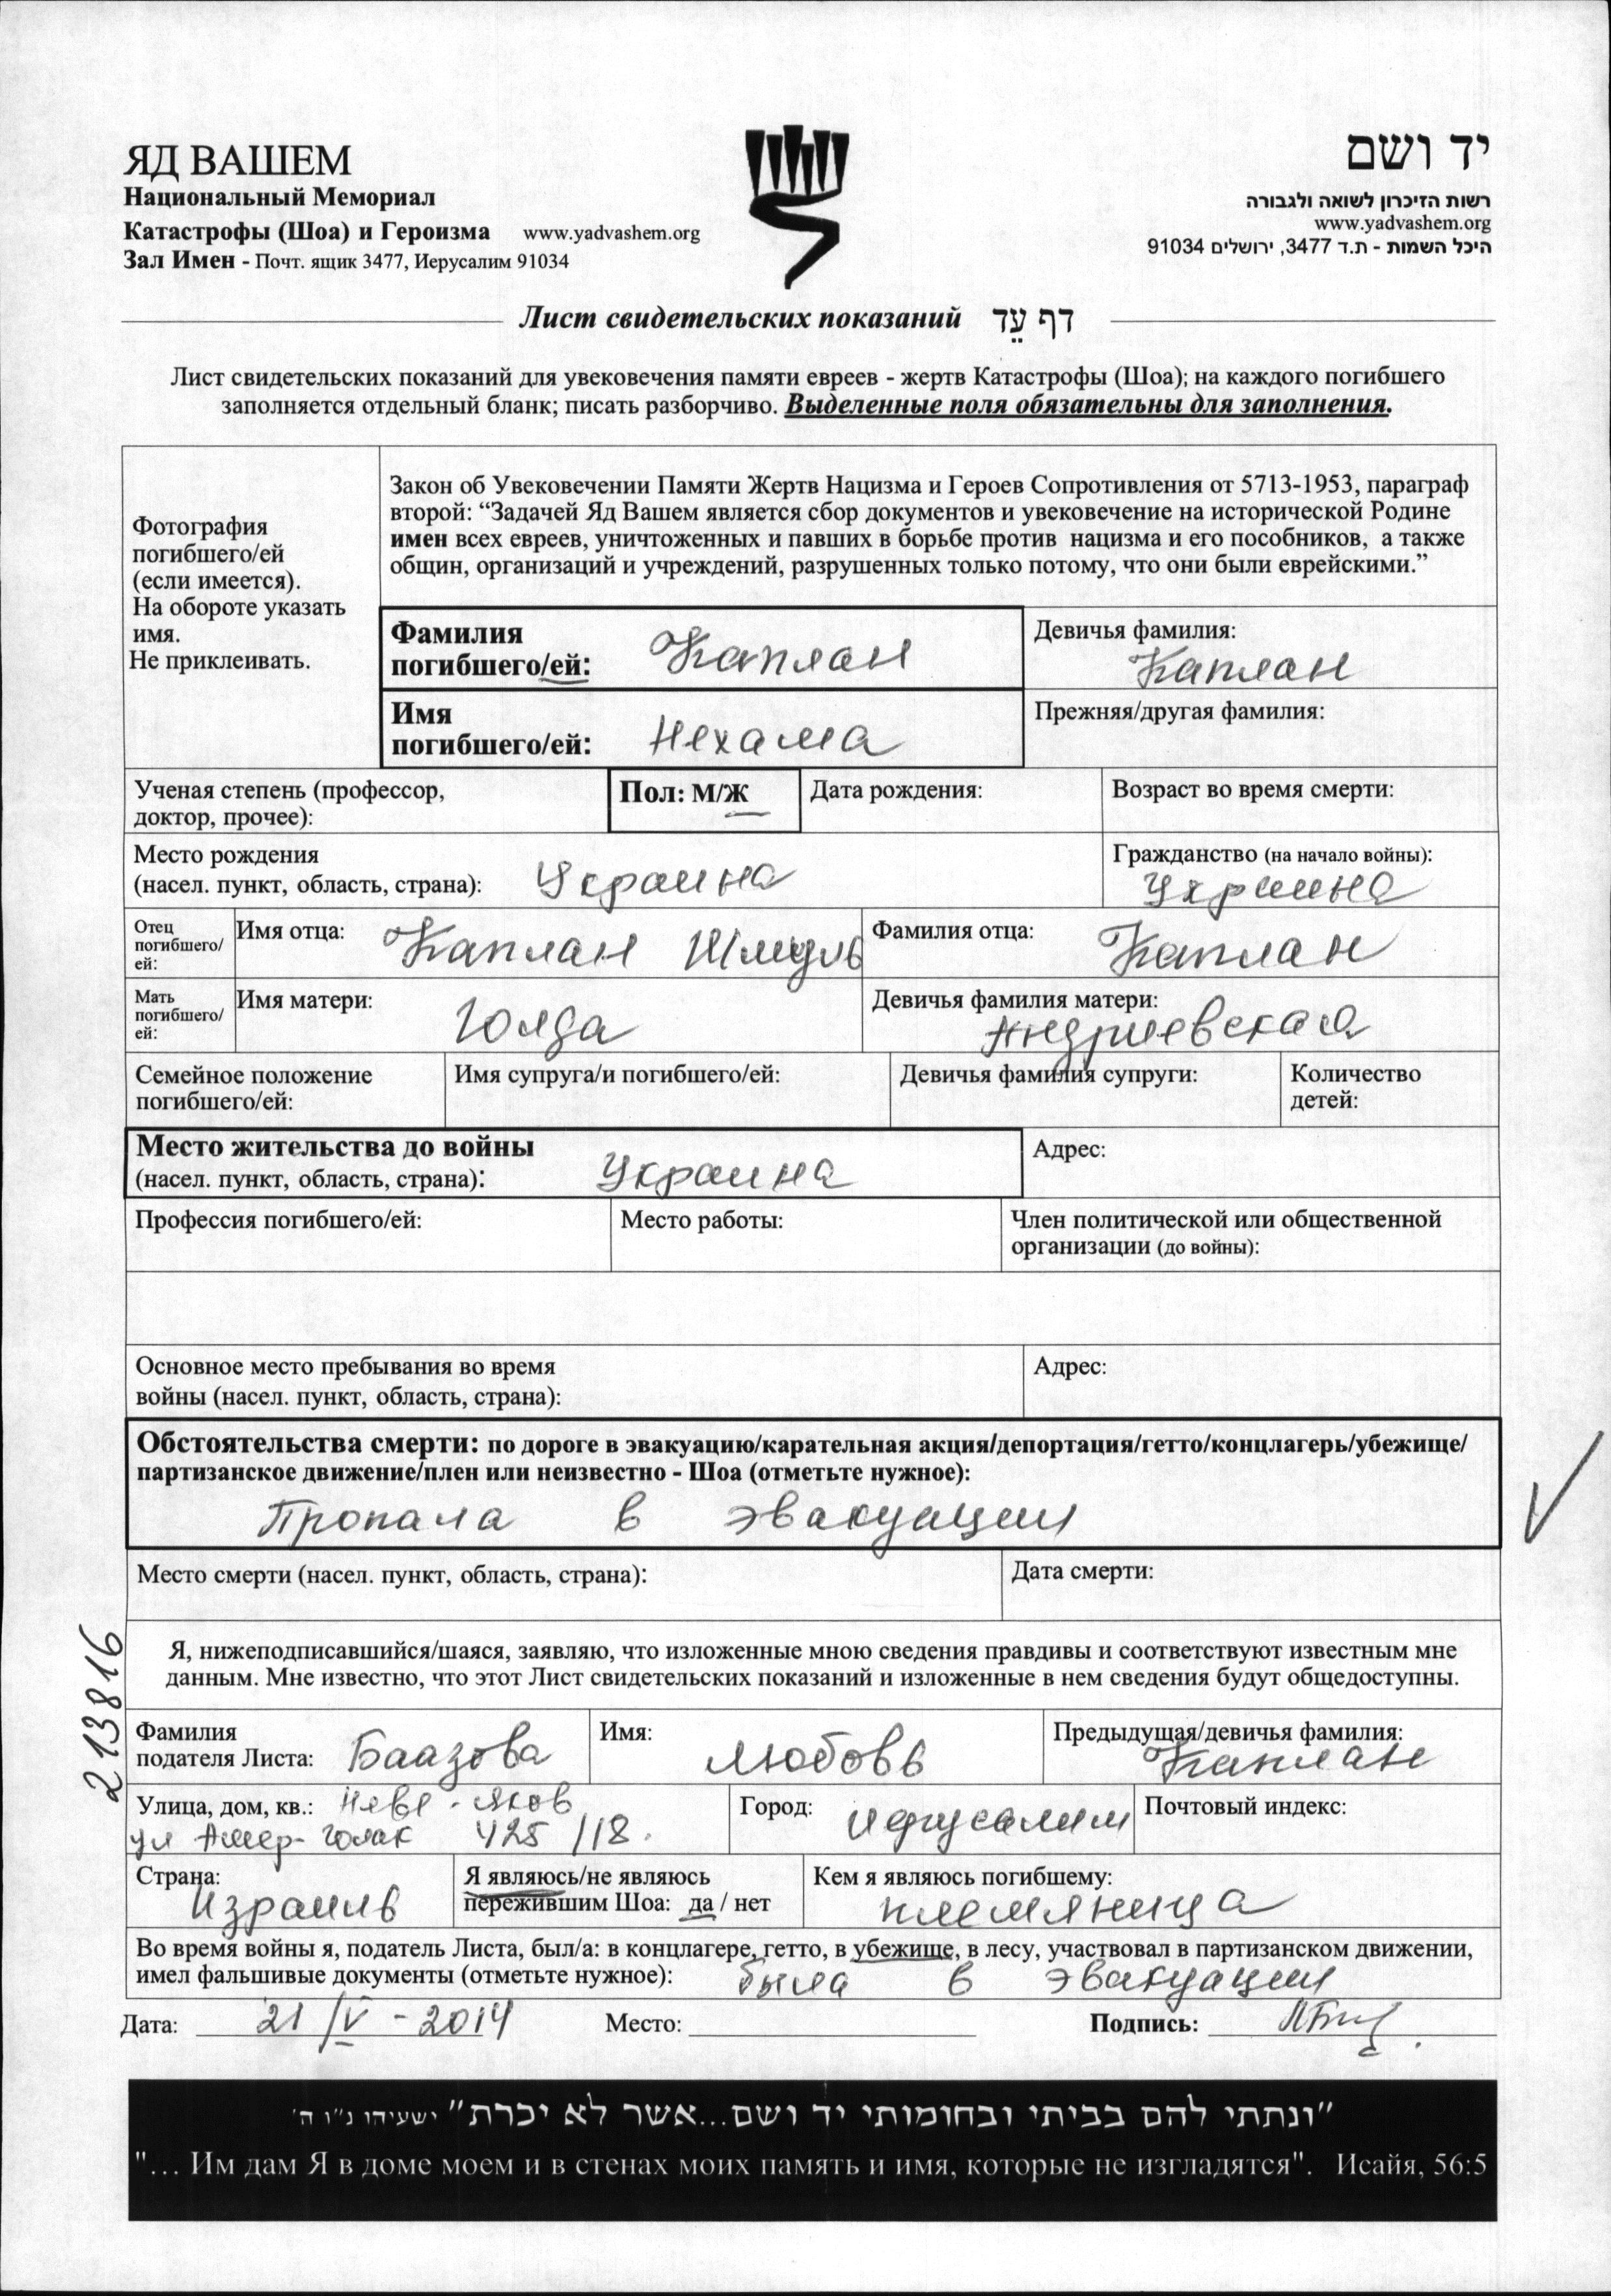 ЯД ВАШЕМ
Национальный Мемориал
Катастрофы (Шоа) и Героизма www.yadvashem.org
Зал Имен - Почт. ящик 3477, Иерусалим 91034
יד ושם
רשות הזיכרון לשואה ולגבורה
www.yadvashem.org
היכל השמות - ת.ד 3477, ירושלים 91034
Лист свидетельских показаний דף עֵד
Лист свидетельских показаний для увековечения памяти евреев - жертв Катастрофы (Шоа); на каждого погибшего
заполняется отдельный бланк; писать разборчиво. Выделенные поля обязательны для заполнения.
Фотография
погибшего/ей
(если имеется).
На обороте указать
имя.
Не приклеивать.
Закон об Увековечении Памяти Жертв Нацизма и Героев Сопротивления от 5713-1953, параграф
второй: “Задачей Яд Вашем является сбор документов и увековечение на исторической Родине
имен всех евреев, уничтоженных и павших в борьбе против нацизма и его пособников, а также
общин, организаций и учреждений, разрушенных только потому, что они были еврейскими.”
Фамилия
погибшего/ей: Каплан
Девичья фамилия:
Каплан
Имя
погибшего/ей: Нехама
Прежняя/другая фамилия:
Ученая степень (профессор,
доктор, прочее):
Пол: М/Ж
Дата рождения:
Возраст во время смерти:
Место рождения
(насел. пункт, область, страна): Украина
Гражданство (на начало войны):
Украина
Отец
погибшего/
ей:
Имя отца: Каплан Шмуль
Фамилия отца: Каплан
Мать
погибшего/
ей:
Имя матери: Голда
Девичья фамилия матери:
Андриевская
Семейное положение
погибшего/ей:
Имя супруга/и погибшего/ей:
Девичья фамилия супруги:
Количество
детей:
Место жительства до войны
(насел. пункт, область, страна): Украина
Адрес:
Профессия погибшего/ей:
Место работы:
Член политической или общественной
организации (до войны):
Основное место пребывания во время
войны (насел. пункт, область, страна):
Адрес:
Обстоятельства смерти: по дороге в эвакуацию/карательная акция/депортация/гетто/концлагерь/убежище/
партизанское движение/плен или неизвестно - Шоа (отметьте нужное):
Пропала в эвакуации
Место смерти (насел. пункт, область, страна):
Дата смерти:
213816
Я, нижеподписавшийся/шаяся, заявляю, что изложенные мною сведения правдивы и соответствуют известным мне
данным. Мне известно, что этот Лист свидетельских показаний и изложенные в нем сведения будут общедоступны.
Фамилия
подателя Листа: Баазова
Имя: Любовь
Предыдущая/девичья фамилия:
Каплан
Улица, дом, кв.: Неве-Яков
ул 425/18.
Город: Иерусалим
Почтовый индекс:
Страна:
Израиль
Я являюсь/не являюсь
пережившим Шоа: да / нет
Кем я являюсь погибшему:
племяница
Во время войны я, податель Листа, был/а: в концлагере, гетто, в убежище, в лесу, участвовал в партизанском движении,
имел фальшивые документы (отметьте нужное): была в эвакуации
Дата: 21/V-2014 Место: Подпись:
"ונתתי להם בביתי ובחומותי יד ושם...אשר לא יכרת" ישעיהו נ"ו ה'
"... Им дам Я в доме моем и в стенах моих память и имя, которые не изгладятся". Исайя, 56:5